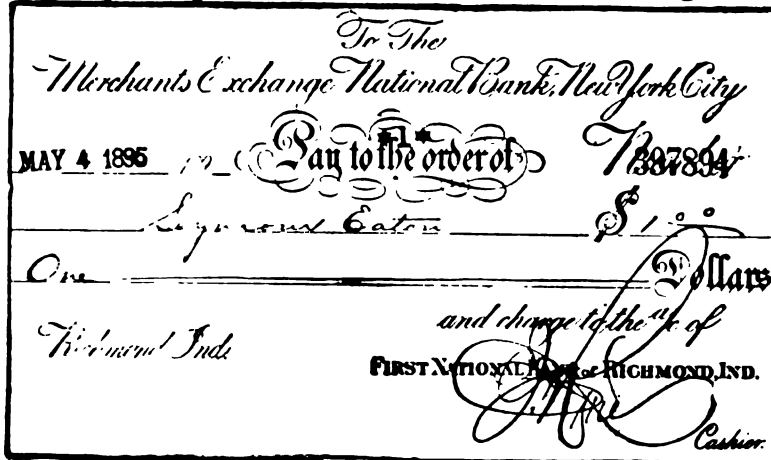 To The
Merchants Exchange National Bank, New York City
MAY 4 1895 Pay to the order of *1* No. 397894
Seymour Eaton $ 1.00
One Dollars
and charge to the a/c of
Richmond Ind.
FIRST NATIONAL BANK of RICHMOND, IND.
Cashier.